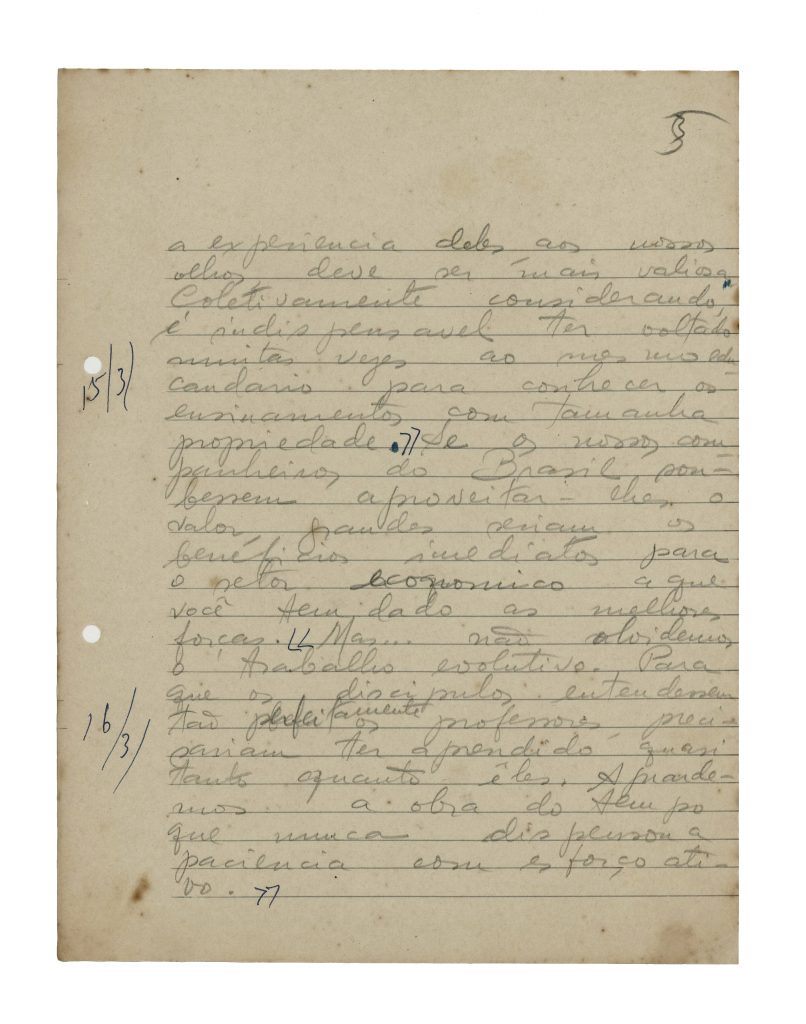 3
a experiencia deles aos nossos
olhos deve ser mais valiosa.
Coletivamente considerando,
é indispensavel ter voltado
muitas vezes ao mesmo edu-
candário para conhecer os
ensinamentos com tamanha
propriedade. 77 Se os nossos com
panheiros do Brasil sou-
bessem aproveitar-lhes o
valor, grandes seriam os
benefícios imediatos para
o setor economico a que
você tem dado as melhores
forças. LL Mas... não olvidemos
o trabalho evolutivo. Para
que os discipulos entendessem
tão perfeitamente os professores, preci-
sariam ter aprendido quasi
tanto quanto êles. Aguarde-
mos a obra do tempo
que nunca dispensou a
paciencia com esforço ati-
vo. 77
15/3)
16/3)